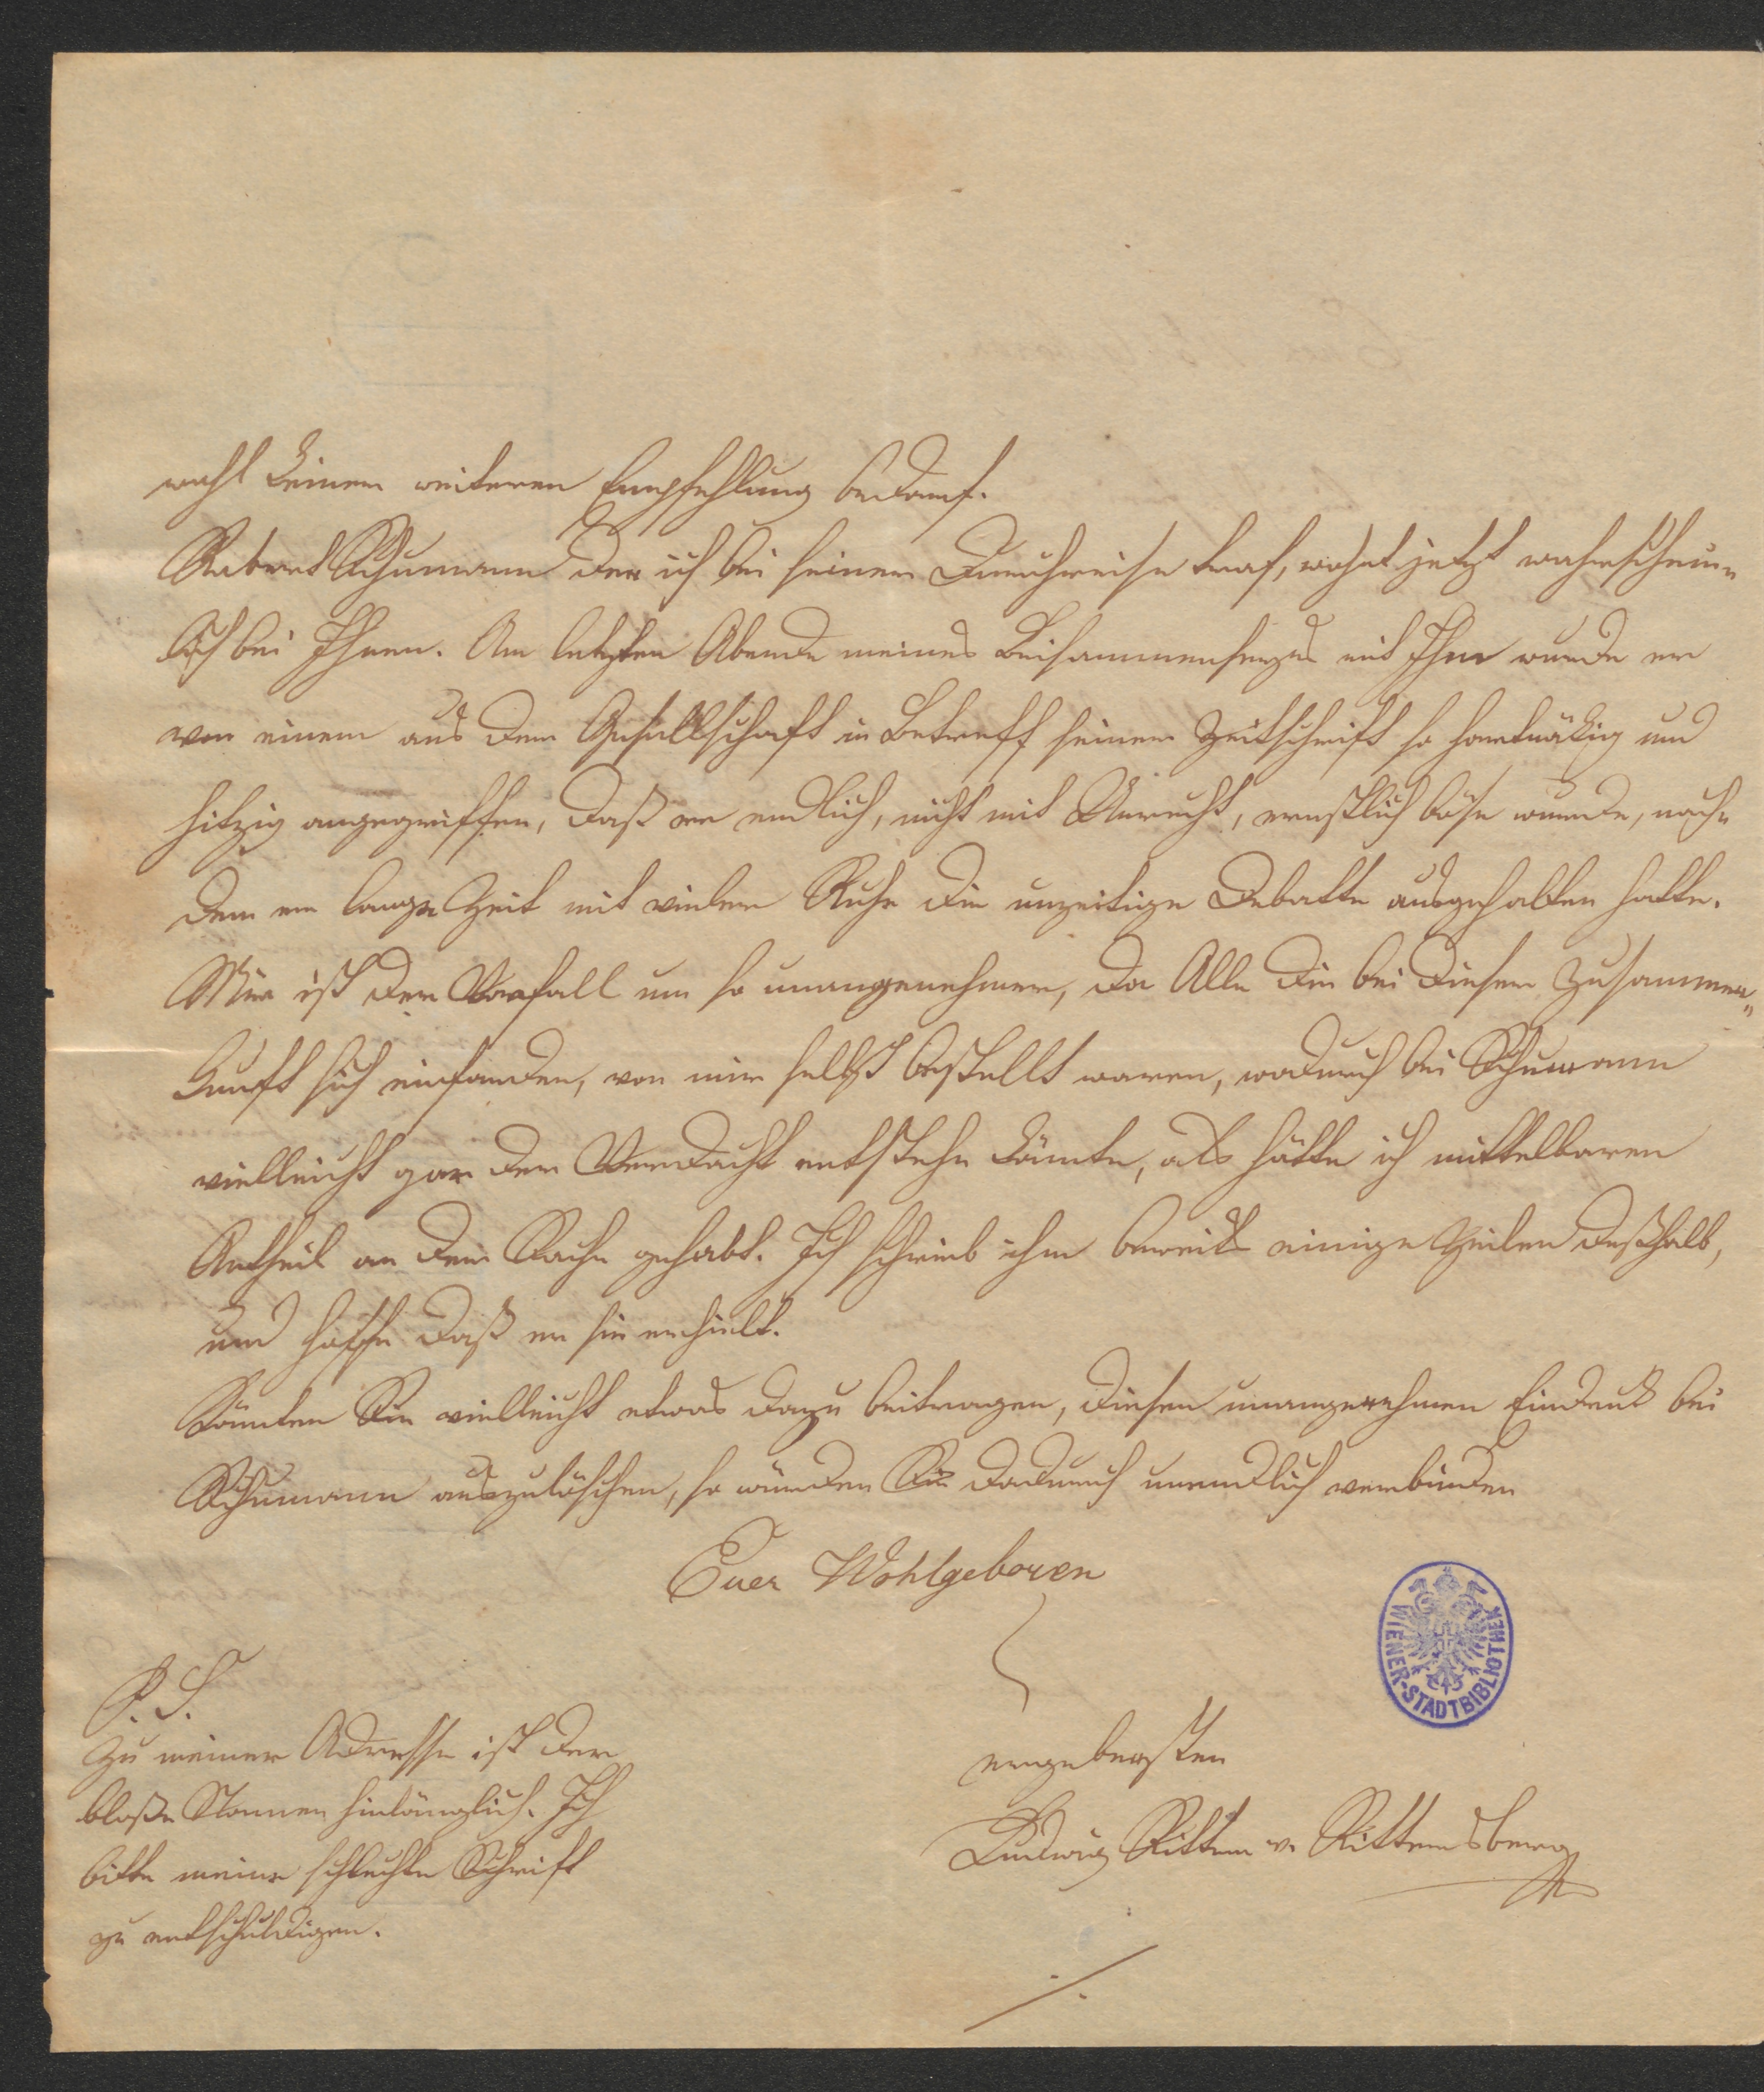 wohl keiner weiteren Empfehlung bedarf.
Robert Schumann den ich bei seiner Durchreise traf, wohnt jetzt wahrschein-
lich bei Ihnen. Am letzten Abende meines Beisammenseyns mit Ihm wurde er
von einem aus der Gesellschaft in Betreff seiner Zeitschrift so hartnäkig und
hitzig angegriffen, daß er endlich, nicht mit Unrecht, ernstlich böse wurde, nach-
dem er lange Zeit mit vieler Ruhe die unzeitige Debatte ausgehalten hatte.
Mir ist der Vorfall um so unangenehmer, da Alle die bei dieser Zusammen„
kunft sich einfanden, von mir selbst bestellt waren, wodurch bei Schumann
vielleicht gar der Verdacht entstehn könnte, als hätte ich mittelbaren
Antheil an der Sache gehabt. Ich schrieb ihm bereits einige Zeilen deßhalb,
und hoffe daß er sie erhielt.
Könnten Sie vielleicht etwas dazu beitragen, diesen unangenehmen Eindruk bei
Schumann auszulöschen, so würden Sie dadurch unendlich verbinden
Euer Wohlgeboren
WIENER-STADTBIBLIOTHEK
P. S.
Zu meiner Adresse ist der
bloße Namen hinlänglich. Ich
bitte meine schlechte Schrift
zu entschuldigen.
ergebensten
Ludwig Ritter v. Rittersberg